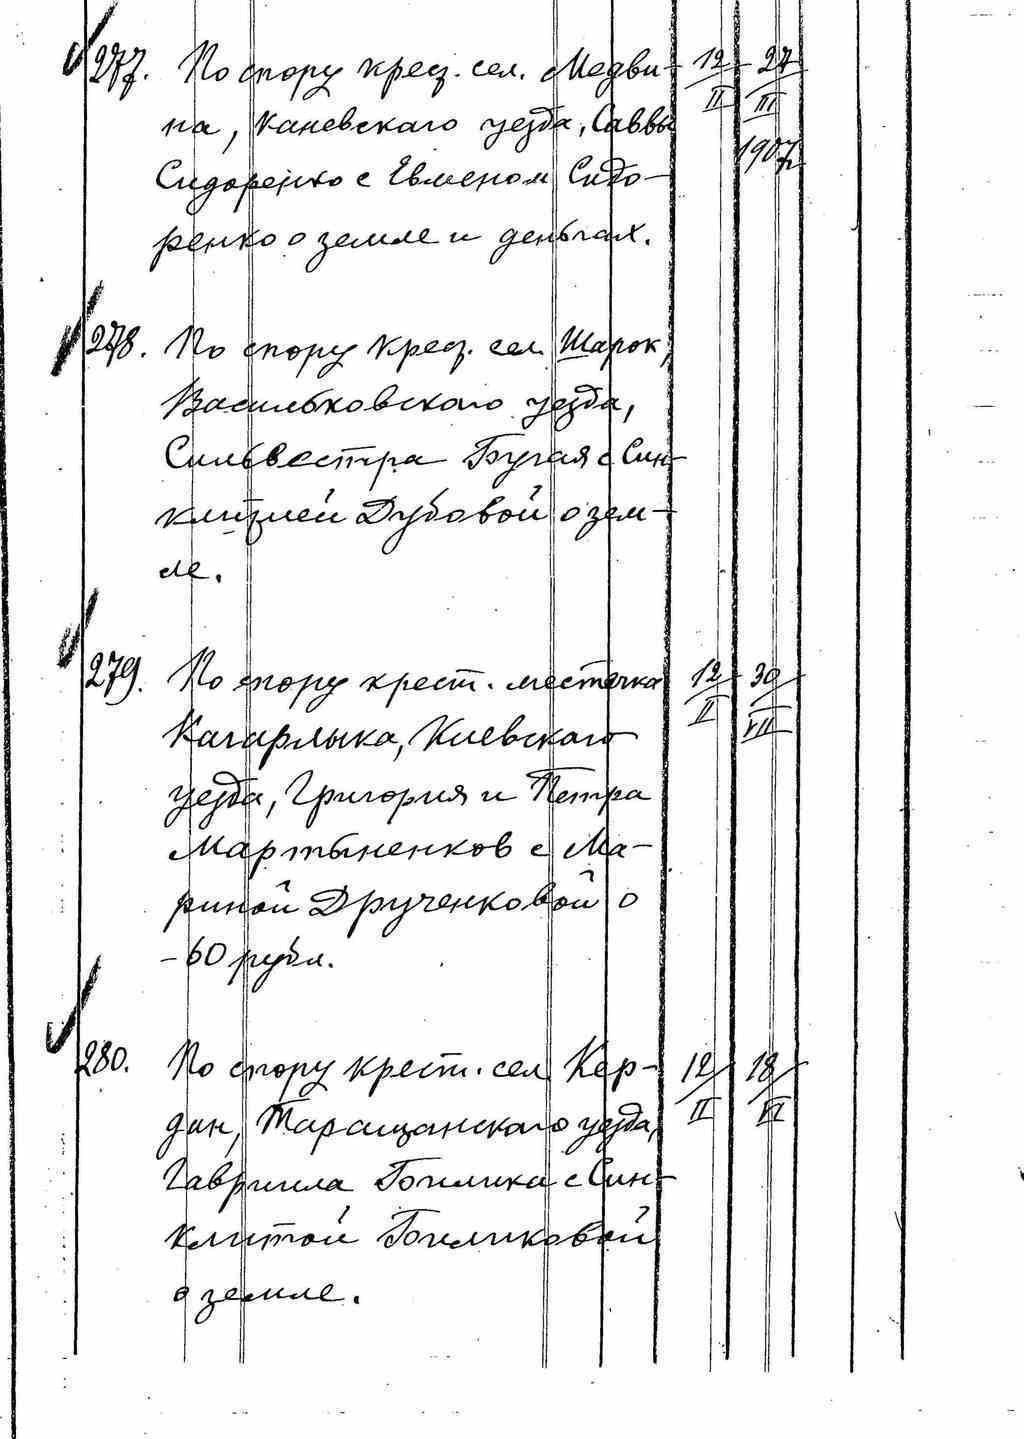 277. По спору крест. сел. Медви- 12/II 27/III
на, Каневскаго уезда, Саввы 1907
Сидоренко с Евменом Сидо-
ренко о земле и деньгах.
278. По спору крест. сел. Шарок,
Васильковскаго уезда,
Сильвестра Бугая с Син-
клитией Дубовой о зем-
ле.
279. По спору крест. местечка 12/II 30/VII
Кагарлыка, Киевскаго
уезда, Григория и Петра
Мартыненков с Ма-
риной Друченковой о
-60 рубл.
280. По спору крест. сел. Кер- 12/II 18/VI
дан, Таращанскаго уезда,
Гавриила Гоилика с Син-
клитой Гоиликовой
о земле.